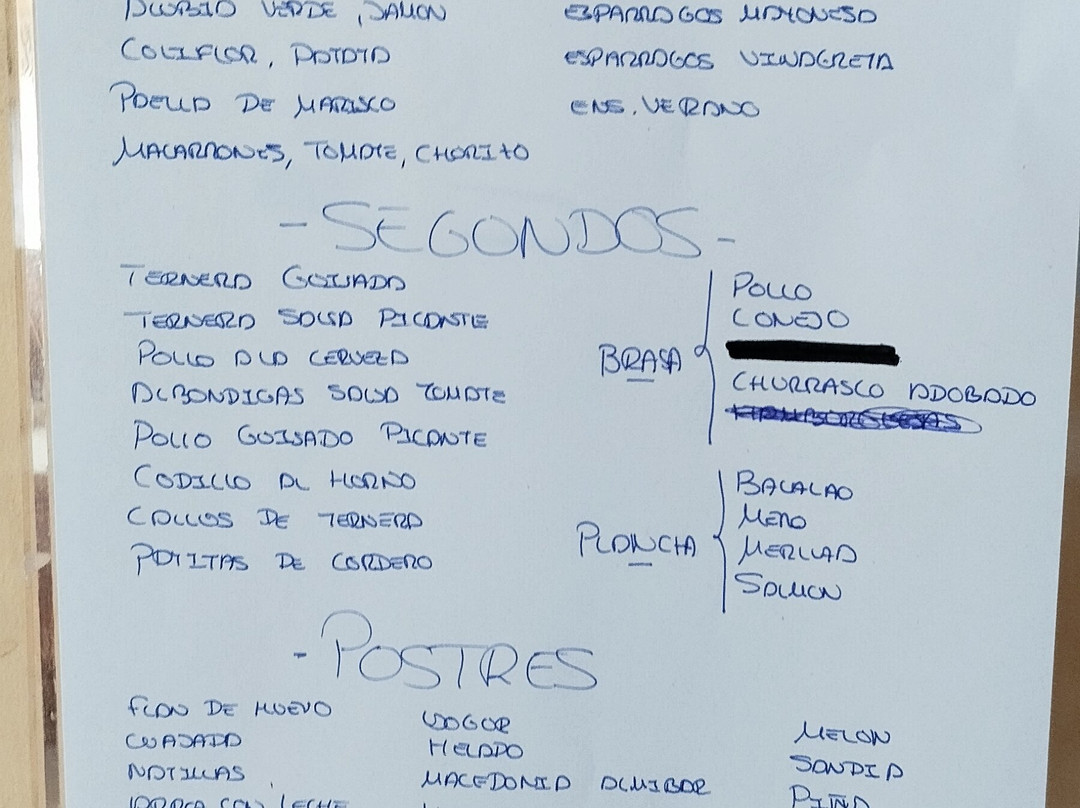 JUDBIO VERDE, JAMON
COLIFLOR, PATATA
PAELLA DE MARISCO
MACARRONES, TOMATE, CHORIZO
ESPARRAGOS MAYONESA
ESPARRAGOS VINAGRETA
ENS. VERANO
- SEGONDOS -
TERNERA GUISADA
TERNERA SALSA PICANTE
POLLO A LA CERVEZA
ALBONDIGAS SALSA TOMATE
POLLO GUISADO PICANTE
CODILLO AL HORNO
CALLOS DE TERNERA
PATITAS DE CORDERO
BRASA
POLLO
CONEJO
CHURRASCO ADOBADO
PLANCHA
BACALAO
MERO
MERLUZA
SALMON
- POSTRES
FLAN DE HUEVO
CUAJADA
NATILLAS
ARROZ CON LECHE
YOGUR
HELADO
MACEDONIA ALMIBAR
MELON
SANDIA
PIÑA